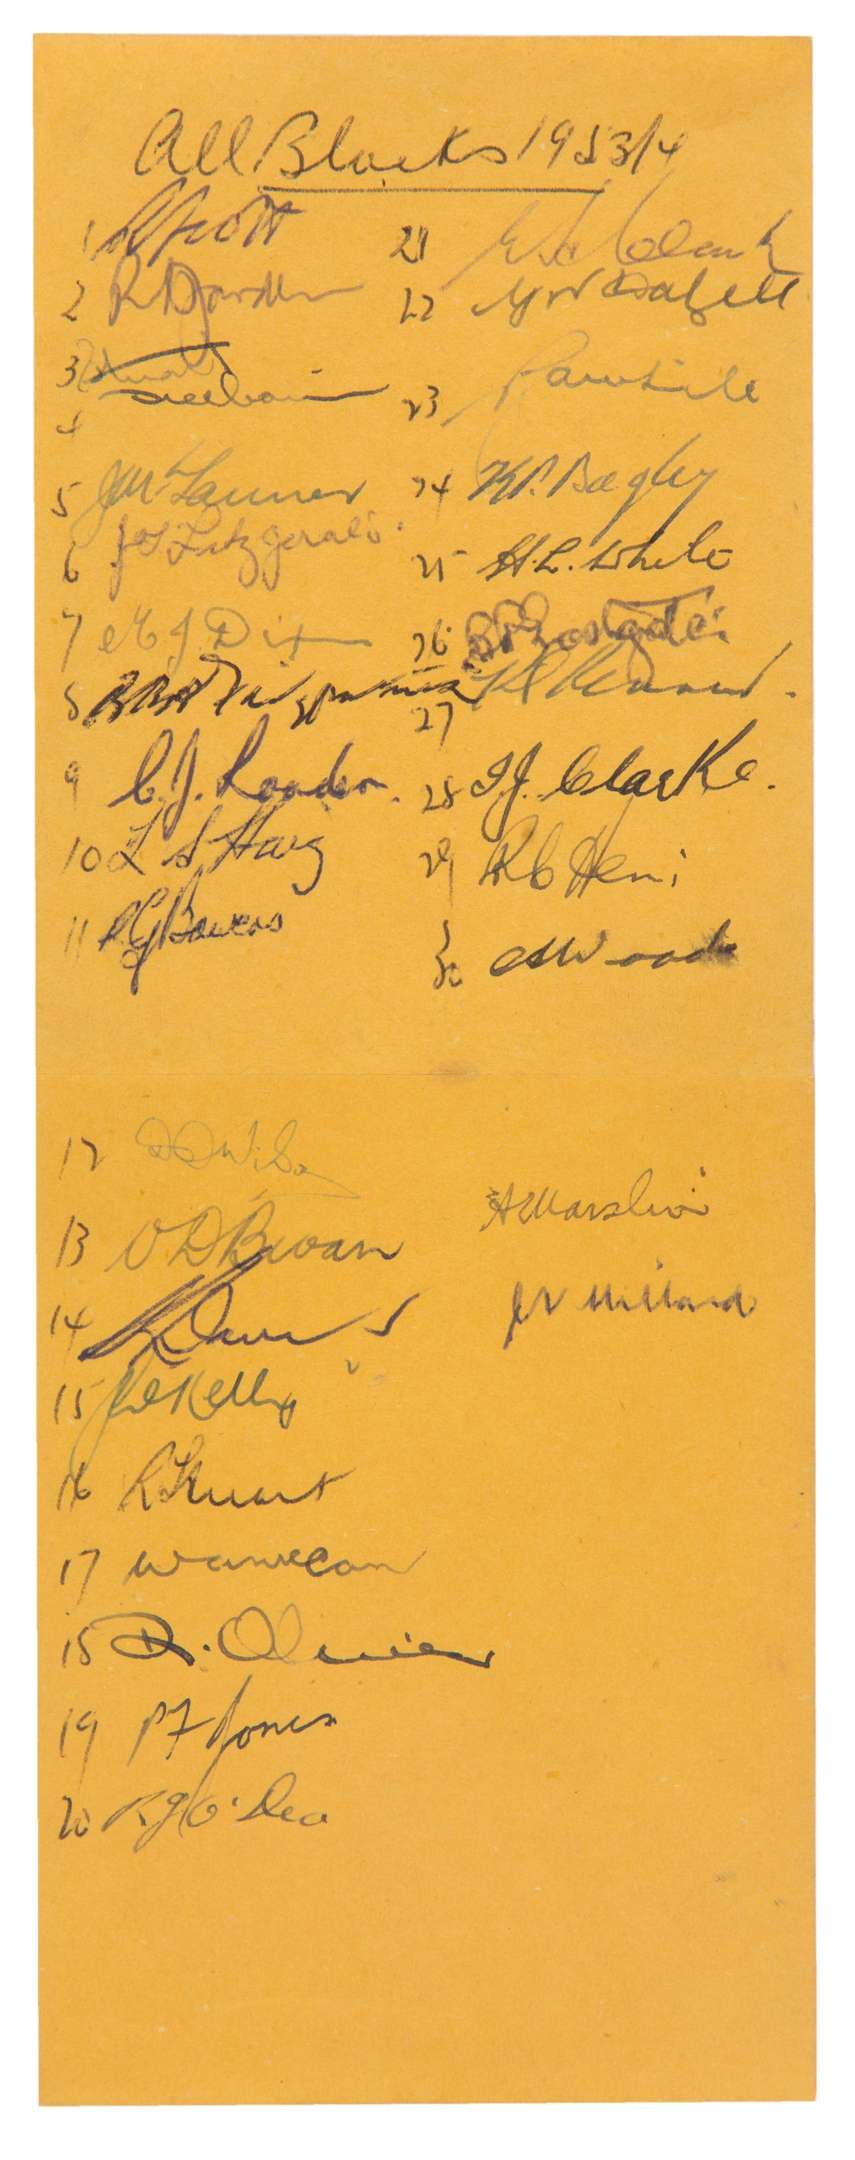 All Blacks 1953/4
1 R Scott
2 R A Jarden
3 Stuart Freebairn
4
5 J M Tanner
6 J T Fitzgerald
7 M J Dixon
8 B B J Fitzpatrick
9 C. J. Loader.
10 L S Haig
11 R G Bowers
12 D D Wilson
13 V D Bevan
14 K Davis
15 J W Kelly
16 R Stuart
17 W A McCaw
18 D. O. Oliver
19 P F Jones
20 R J O'Dea
21 W H Clark
22 G N Dalzell
23 R A White
24 K P. Bagley
25 H. L. White
26 B P Eastgate
27 K L Skinner.
28 I. J. Clarke.
29 R C Hemi
30 C A Woods
A E Marslin
J N Millard